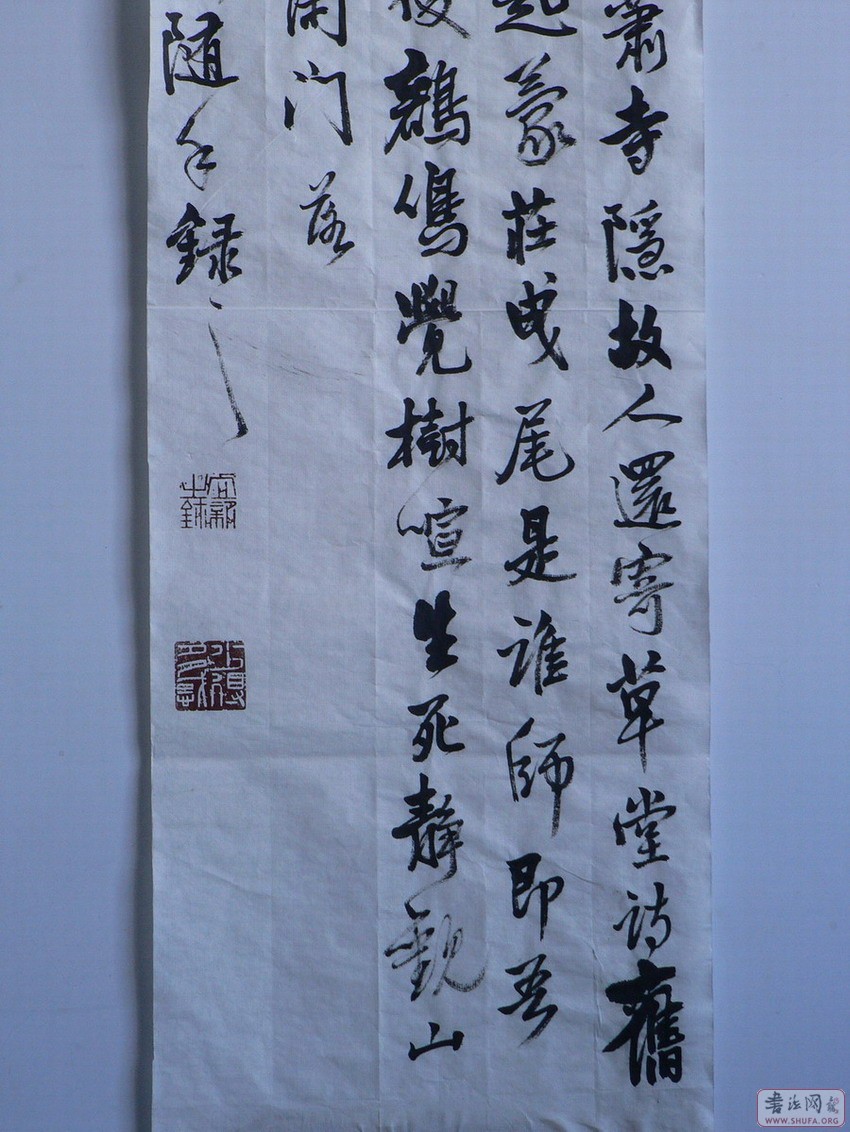 蕭寺隱故人還寄草堂詩舊
起蒙莊曳尾是誰師即吾
後鵷雋覺樹喧生死靜觀山
閑门落
随手録之
書法网
WWW.SHUFA.ORG